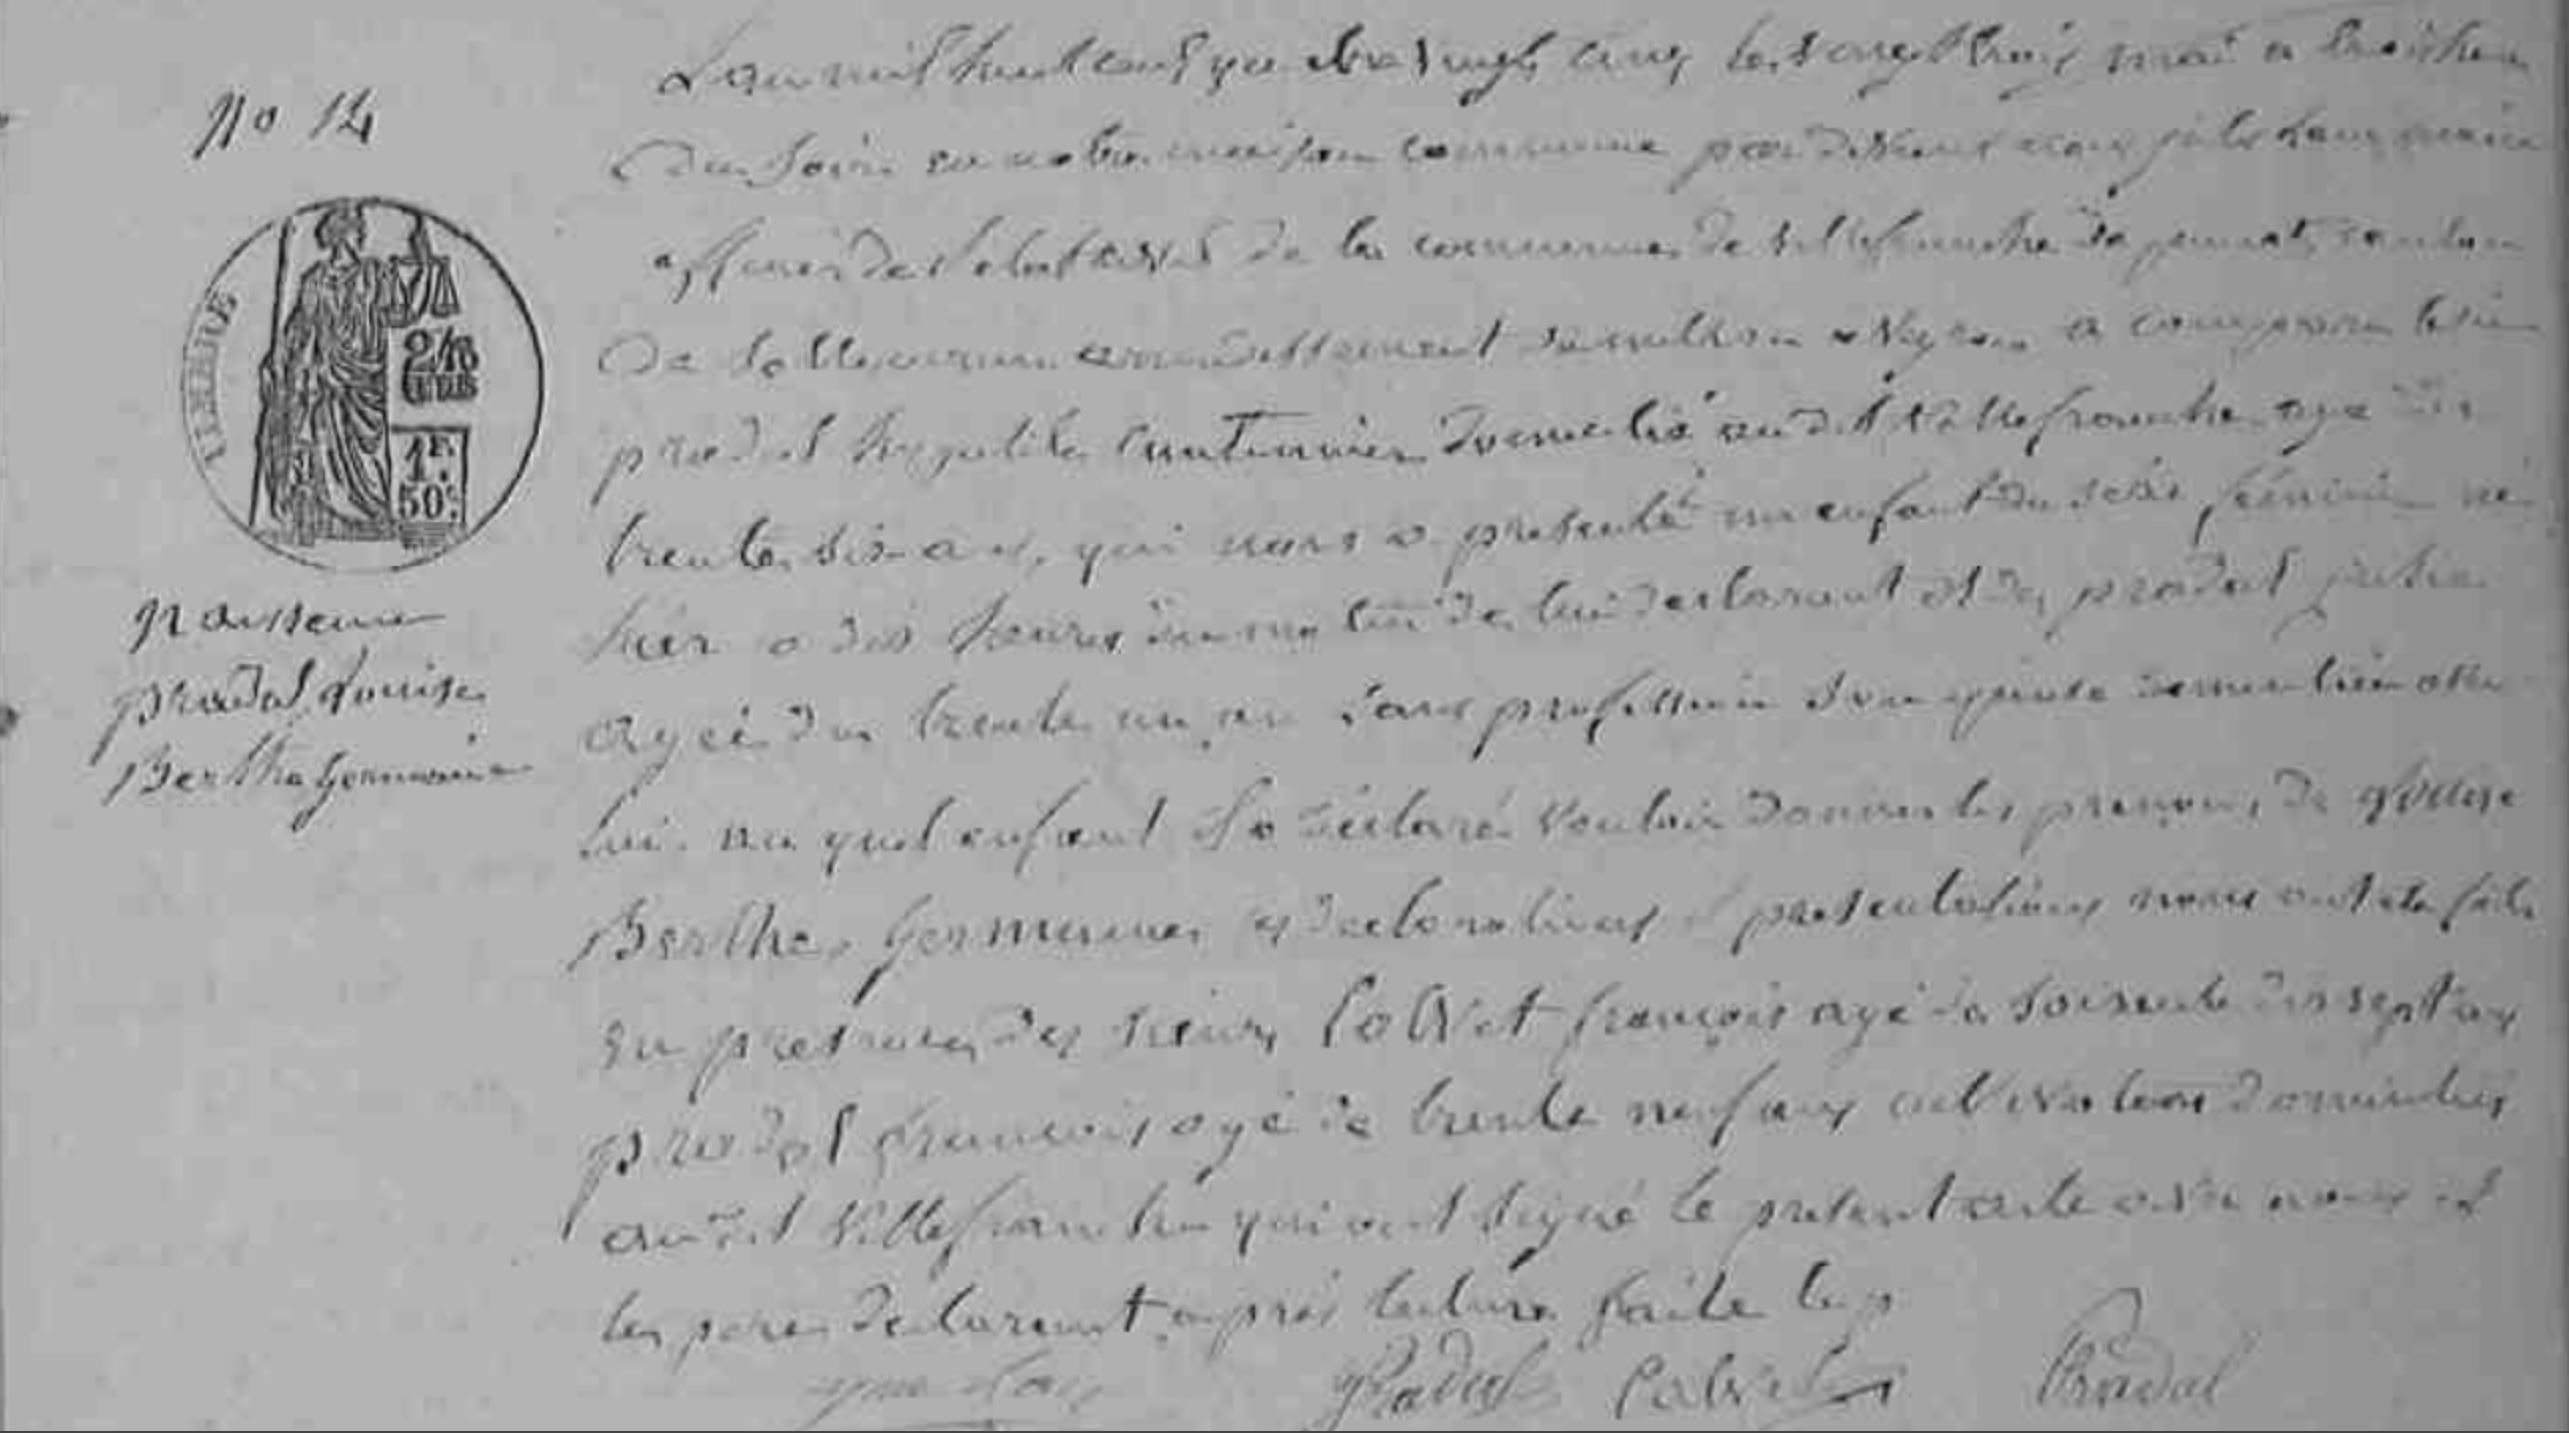 No 14
2/10
EN SUS
1F.
50c.
Naissance
pradal Louise
Berthe Germaine
L'an mil huit cent quatre vingt cinq le vingt trois mai a trois heures
Du soir en notre maison commune par devant nous maire
officier de l'etat civil de la commune de villefranche de panat canton
De Salles curan arrondissement de milhau aveyron a comparu le sieur
pradal hypolite Cantonnier domicilié audit Villefranche age de
trente six ans, qui nous a presenté un enfant du sexe féminin né
hier a dix heures du matin de lui declarant et de pradal
agée de trente un an sans profession son epouse demeurant avec
lui. au quel enfant il a déclaré vouloir donner les prenoms de Louise
Berthe Germaine es declarations presentations nous ont ete faite
en presence des sieurs Calvet françois agé de soixante dix sept ans
pradal francois agé de trente neuf ans cultivateurs domiciliés
audit Villefranche qui ont signé le present acte avec nous et
le pere declarant après lecture faite
Pradal Calvet Pradal